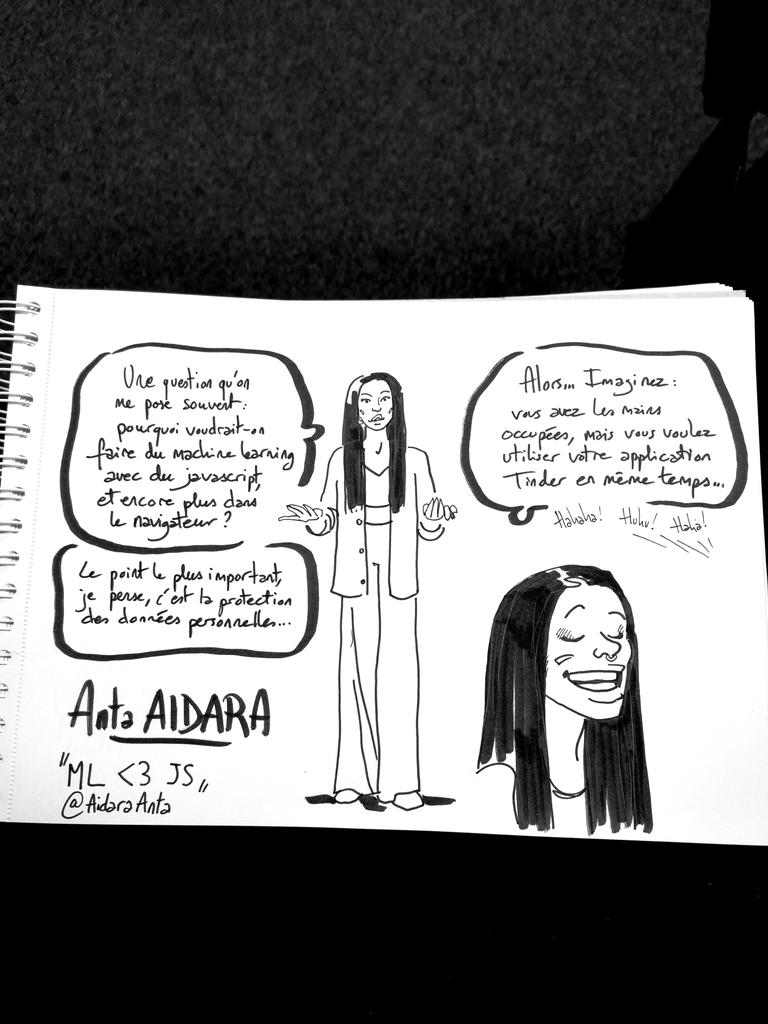 Une question qu'on
me pose souvent:
pourquoi voudrait-on
faire du machine learning
avec du javascript,
et encore plus dans
le navigateur ?
Le point le plus important,
je pense, c'est la protection
des données personnelles...
Alors... Imaginez :
vous avez les mains
occupées, mais vous voulez
utiliser votre application
Tinder en même temps...
Hahaha! Huhu! Haha!
Anta AIDARA
"ML <3 JS"
@AidaraAnta